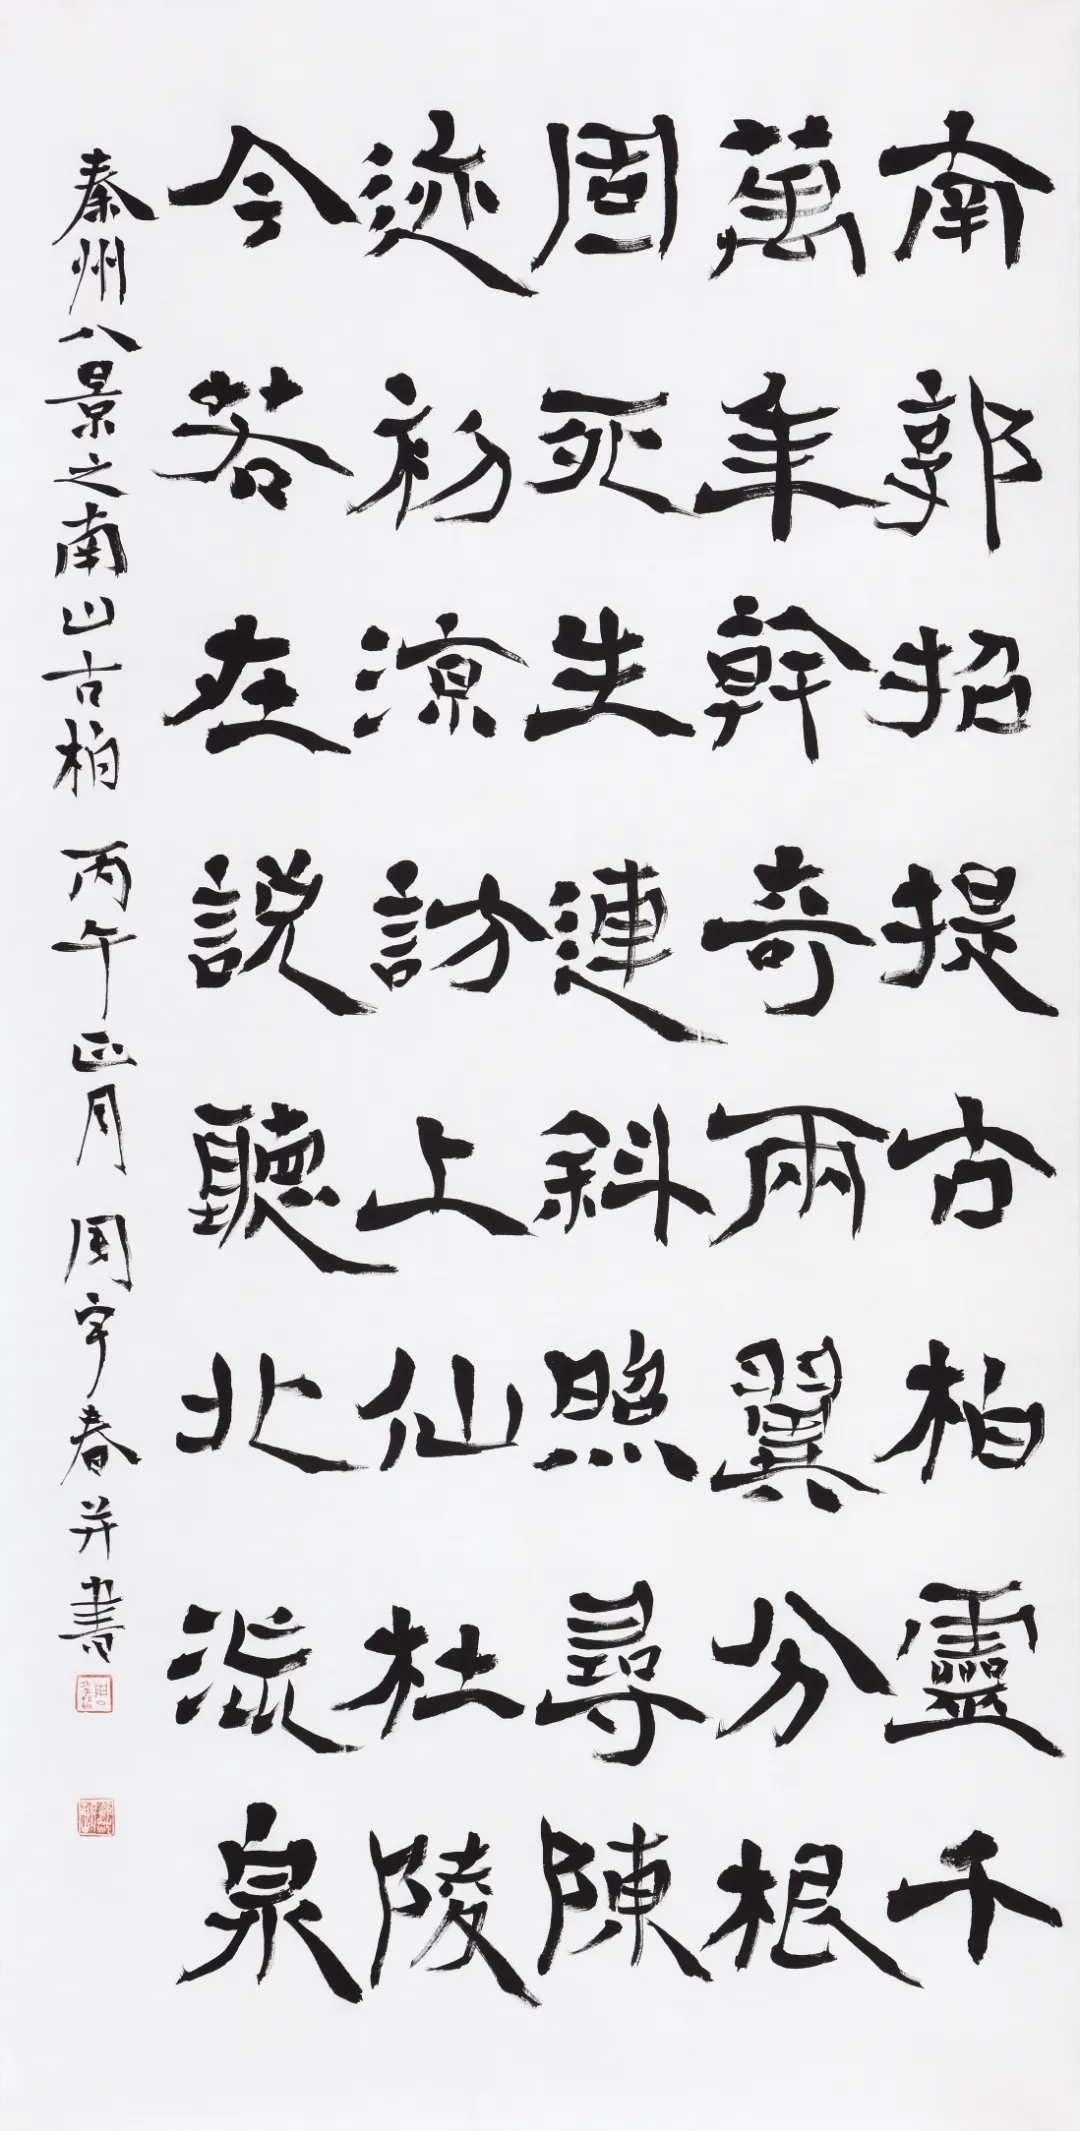 南郭招提古柏靈千
萬年幹奇兩翼分根
固死生連斜照尋陳
迹初涼訪上仙杜陵
今若在說聽北流泉
秦州八景之南山古柏 丙午正月 周宇春并書